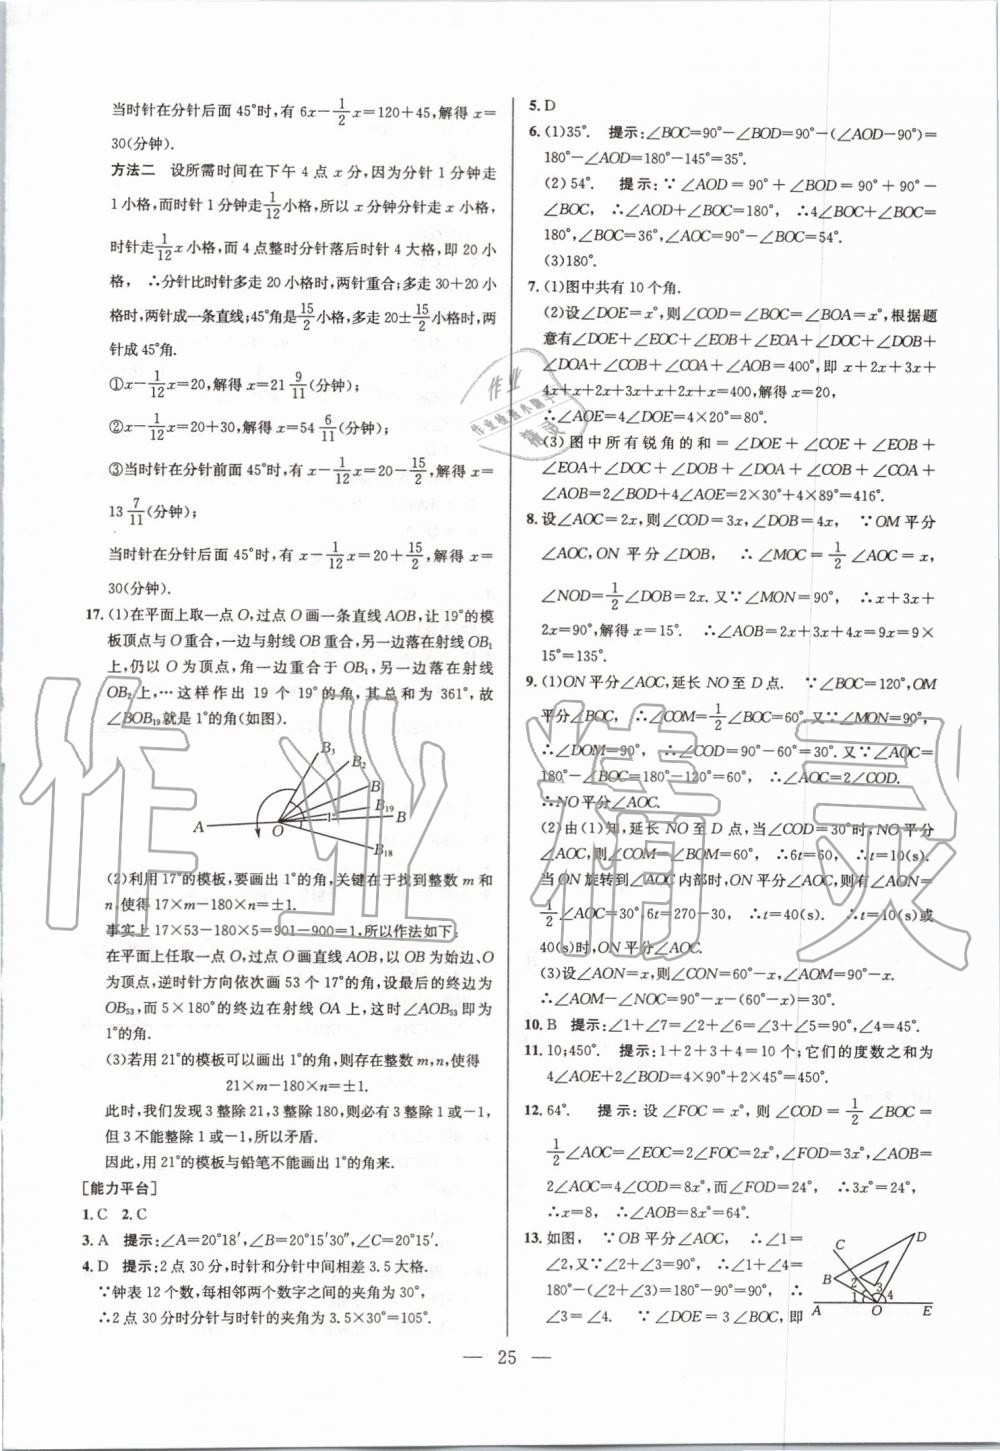 当时针在分针后面 45°时,有 6x−1/2x=120+45,解得 x=
30(分钟).
方法二 设所需时间在下午 4 点 x 分,因为分针 1 分钟走
1 小格,而时针 1 分钟走1/12小格,所以 x 分钟分针走 x 小格,
时针走1/12x 小格,而 4 点整时分针落后时针 4 大格,即 20 小
格, ∴分针比时针多走 20 小格时,两针重合;多走 30+20 小
格时,两针成一条直线;45°角是15/2小格,多走 20±15/2小格时,两
针成 45°角.
①x−1/12x=20,解得 x=21 9/11(分钟);
②x−1/12x=20+30,解得 x=54 6/11(分钟);
③当时针在分针前面 45°时,有 x−1/12x=20−15/2,解得 x=
13 7/11(分钟);
当时针在分针后面 45°时,有 x−1/12x=20+15/2,解得 x=
30(分钟).
17. (1)在平面上取一点 O,过点 O 画一条直线 AOB,让 19°的模
板顶点与 O 重合,一边与射线 OB 重合,另一边落在射线 OB₁
上,仍以 O 为顶点,角一边重合于 OB₁,另一边落在射线
OB₂ 上,… 这样作出 19 个 19°的角,其总和为 361°,故
∠BOB₁₉就是 1°的角(如图).
B₃
B₂
B
B₁₉
A
O
1°
B
B₁₈
(2)利用 17°的模板,要画出 1°的角,关键在于找到整数 m 和
n,使得 17×m−180×n=±1.
事实上 17×53−180×5=901−900=1,所以作法如下:
在平面上任取一点 O,过点 O 画直线 AOB,以 OB 为始边、O
为顶点,逆时针方向依次画 53 个 17°的角,设最后的终边为
OB₅₃,而 5×180°的终边在射线 OA 上,这时∠AOB₅₃即为
1°的角.
(3)若用 21°的模板可以画出 1°的角,则存在整数 m,n,使得
21×m−180×n=±1.
此时,我们发现 3 整除 21,3 整除 180,则必有 3 整除 1 或−1,
但 3 不能整除 1 或−1,所以矛盾.
因此,用 21°的模板与铅笔不能画出 1°的角来.
[能力平台]
1. C 2. C
3. A 提示:∠A=20°18′,∠B=20°15′30″,∠C=20°15′.
4. D 提示:2 点 30 分,时针和分针中间相差 3.5 大格.
∵钟表 12 个数,每相邻两个数字之间的夹角为 30°,
∴2 点 30 分时分针与时针的夹角为 3.5×30°=105°.
5. D
6. (1)35°. 提示:∠BOC=90°−∠BOD=90°−(∠AOD−90°)=
180°−∠AOD=180°−145°=35°.
(2) 54°. 提示:∵∠AOD=90°+∠BOD=90°+90°−
∠BOC, ∴∠AOD+∠BOC=180°, ∴4∠BOC+∠BOC=
180°,∠BOC=36°,∠AOC=90°−∠BOC=54°.
(3)180°.
7. (1)图中共有 10 个角.
(2)设∠DOE=x°,则∠COD=∠BOC=∠BOA=x°,根据题
意有∠DOE+∠EOC+∠EOB+∠EOA+∠DOC+∠DOB+
∠DOA+∠COB+∠COA+∠AOB=400°,即 x+2x+3x+
4x+x+2x+3x+x+2x+x=400,解得 x=20,
∴∠AOE=4∠DOE=4×20°=80°.
(3)图中所有锐角的和=∠DOE+∠COE+∠EOB+
∠EOA+∠DOC+∠DOB+∠DOA+∠COB+∠COA+
∠AOB=2∠BOD+4∠AOE=2×30°+4×89°=416°.
8. 设∠AOC=2x,则∠COD=3x,∠DOB=4x, ∵OM 平分
∠AOC,ON 平分∠DOB, ∴∠MOC=1/2∠AOC=x,
∠NOD=1/2∠DOB=2x.又∵∠MON=90°, ∴x+3x+
2x=90°,解得 x=15°. ∴∠AOB=2x+3x+4x=9x=9×
15°=135°.
9. (1)ON 平分∠AOC,延长 NO 至 D 点. ∵∠BOC=120°,OM
平分∠BOC, ∴∠COM=1/2∠BOC=60°.又∵∠MON=90°,
∴∠DOM=90°, ∴∠COD=90°−60°=30°.又∵∠AOC=
180°−∠BOC=180°−120°=60°, ∴∠AOC=2∠COD.
∴NO 平分∠AOC.
(2)由(1)知,延长 NO 至 D 点,当∠COD=30°时,NO 平分
∠AOC,则∠COM=∠BOM=60°, ∴6t=60, ∴t=10(s).
当 ON 旋转到∠AOC 内部时,ON 平分∠AOC,则有∠AON=
1/2∠AOC=30°,6t=270−30, ∴t=40(s). ∴t=10(s)或
40(s)时,ON 平分∠AOC.
(3)设∠AON=x,则∠CON=60°−x,∠AOM=90°−x.
∴∠AOM−∠NOC=90°−x−(60°−x)=30°.
10. B 提示:∠1+∠7=∠2+∠6=∠3+∠5=90°,∠4=45°.
11. 10;450°. 提示:1+2+3+4=10 个;它们的度数之和为
4∠AOE+2∠BOD=4×90°+2×45°=450°.
12. 64°. 提示:设∠FOC=x°,则∠COD=1/2∠BOC=
1/2∠AOC=∠EOC=2∠FOC=2x°,∠FOD=3x°,∠AOB=
2∠AOC=4∠COD=8x°,而∠FOD=24°, ∴3x°=24°,
∴x=8, ∴∠AOB=8x°=64°.
13. 如图, ∵OB 平分∠AOC, ∴∠1=
∠2,又∵∠2+∠3=90°, ∴∠1+∠4=
180°−(∠2+∠3)=180°−90°=90°, ∴
∠3=∠4. ∵∠DOE=∠BOC,即
C
D
B
2
3
1
4
A
O
E
— 25 —
作业
作业检查小助手
精灵
作业精灵